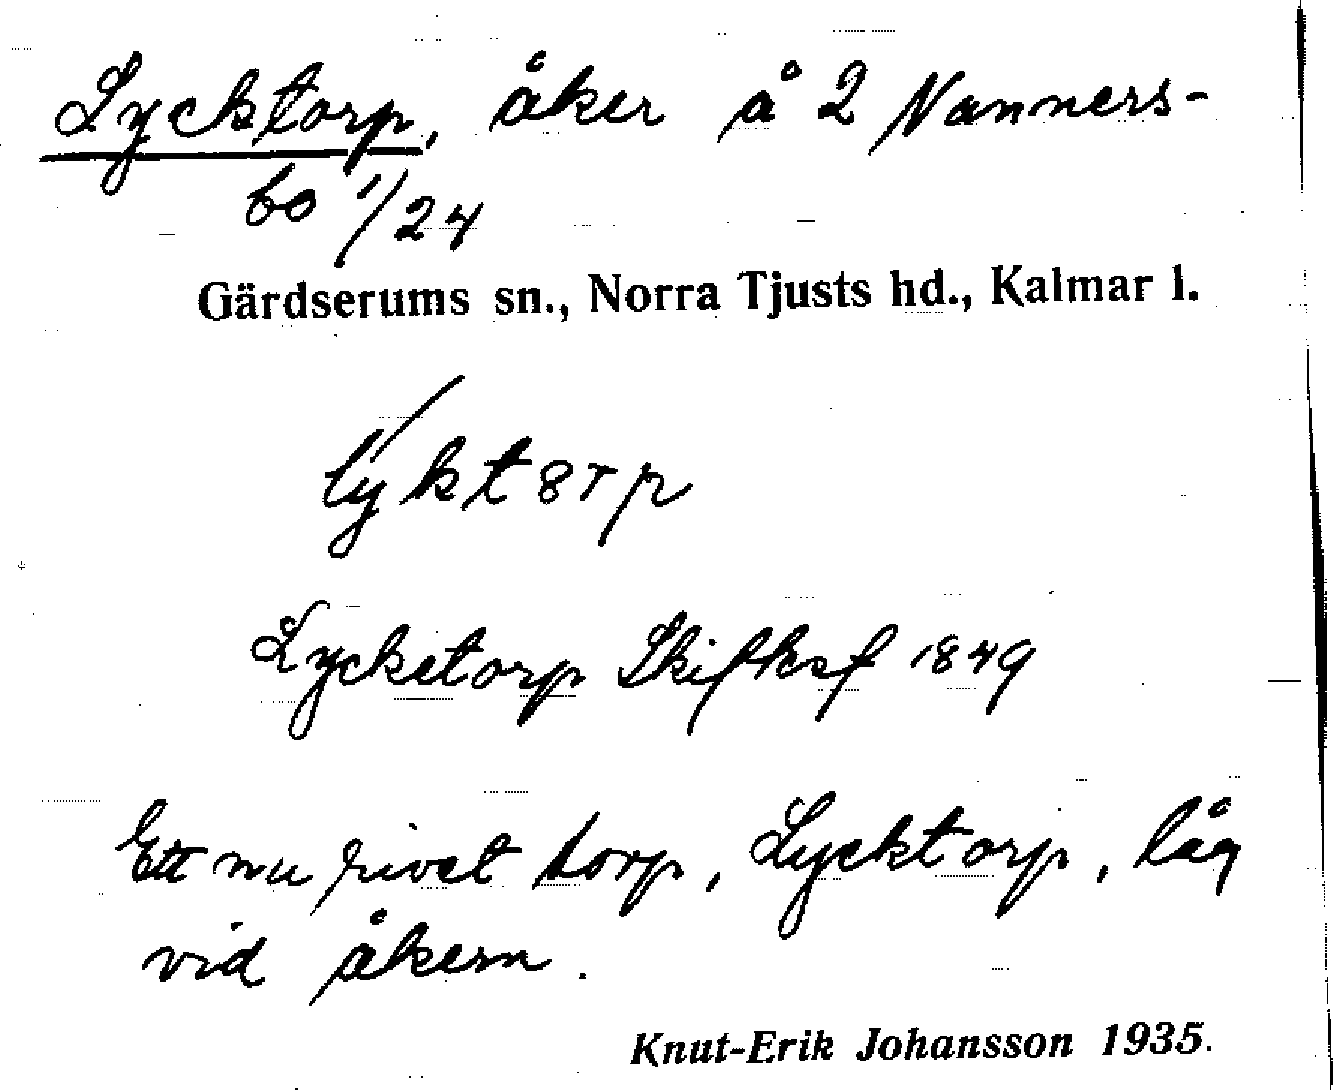 Lycktorp, åker å 2 Nanners-
bo 1/24
Gärdserums sn., Norra Tjusts hd., Kalmar l.
lyktȣrp
Lycketorp Skifksf 1849
Ett nu rivet torp, Lycktorp, låg
vid åkern.
Knut-Erik Johansson 1935.